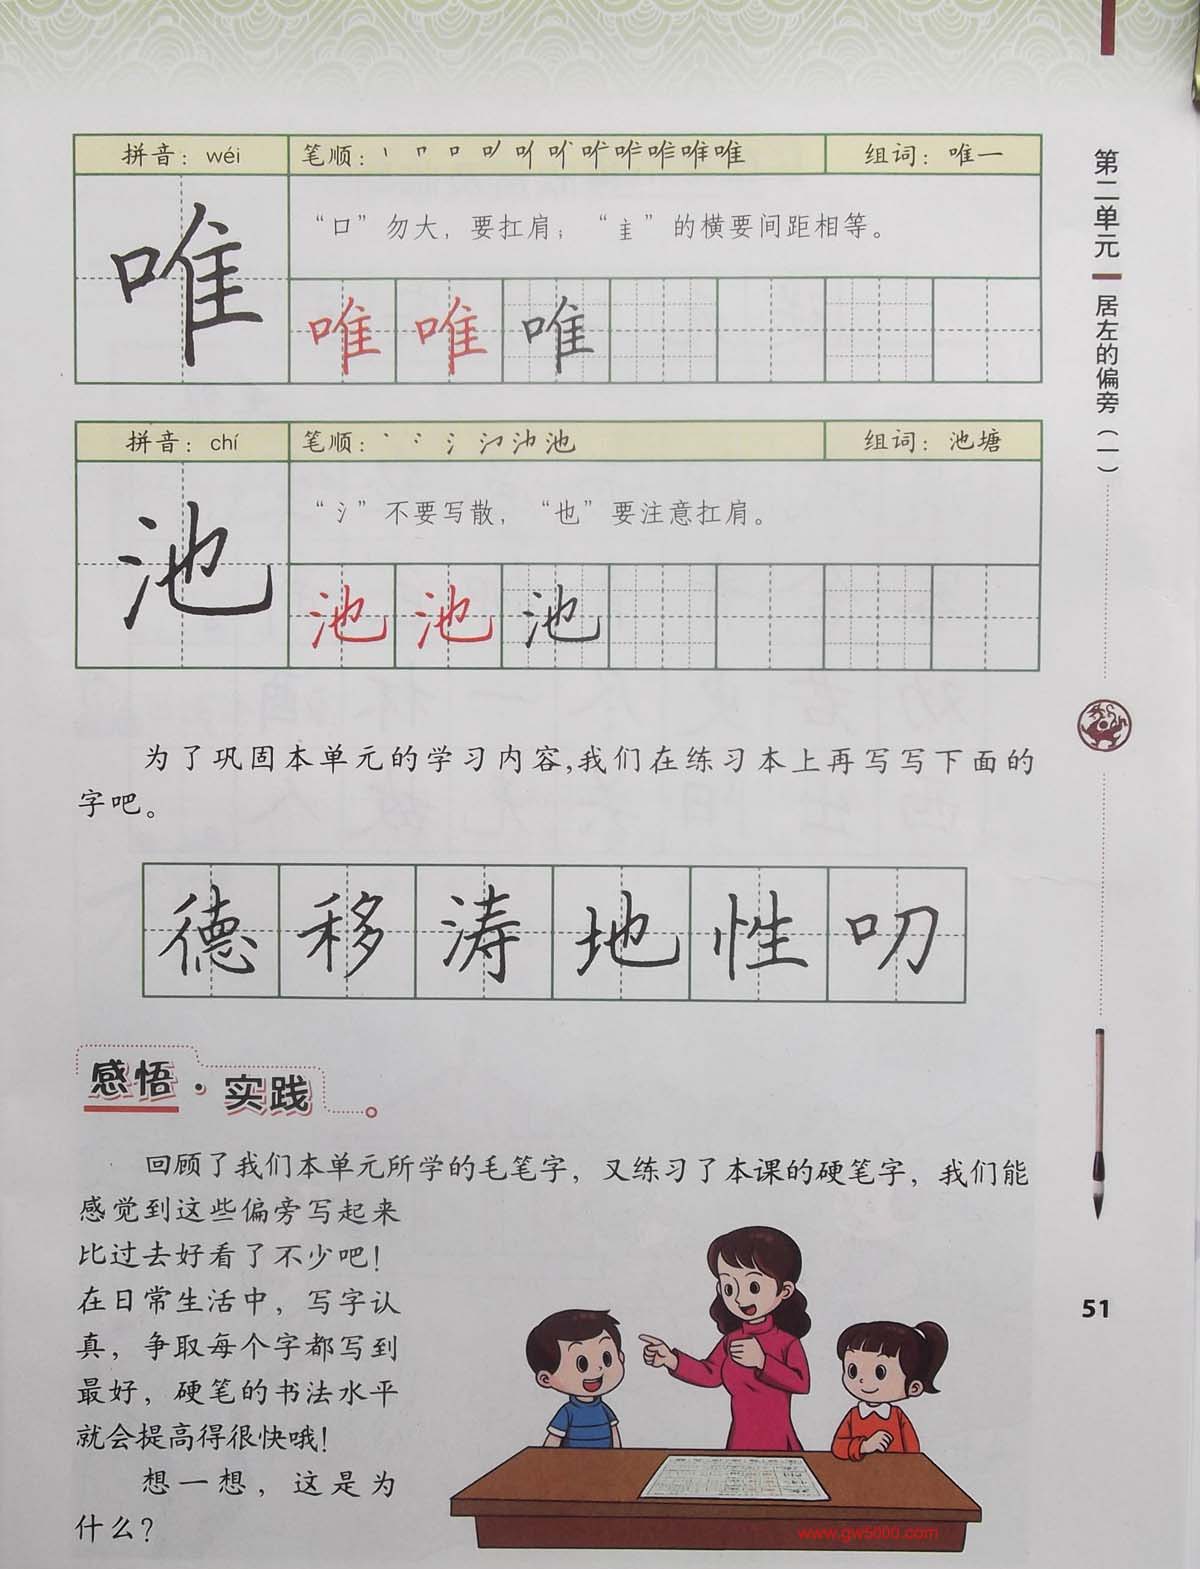 拼音：wéi 笔顺： 组词：唯一
唯
“口”勿大，要扛肩；“”的横要间距相等。
唯 唯 唯
拼音：chí 笔顺： 组词：池塘
池
“氵”不要写散，“也”要注意扛肩。
池 池 池
为了巩固本单元的学习内容，我们在练习本上再写写下面的
字吧。
德 移 涛 地 性 叨
感悟·实践
回顾了我们本单元所学的毛笔字，又练习了本课的硬笔字，我们能
感觉到这些偏旁写起来
比过去好看了不少吧！
在日常生活中，写字认
真，争取每个字都写到
最好，硬笔的书法水平
就会提高得很快哦！
想一想，这是为
什么？
第二单元 居左的偏旁（一）
51
www.gw5000.com